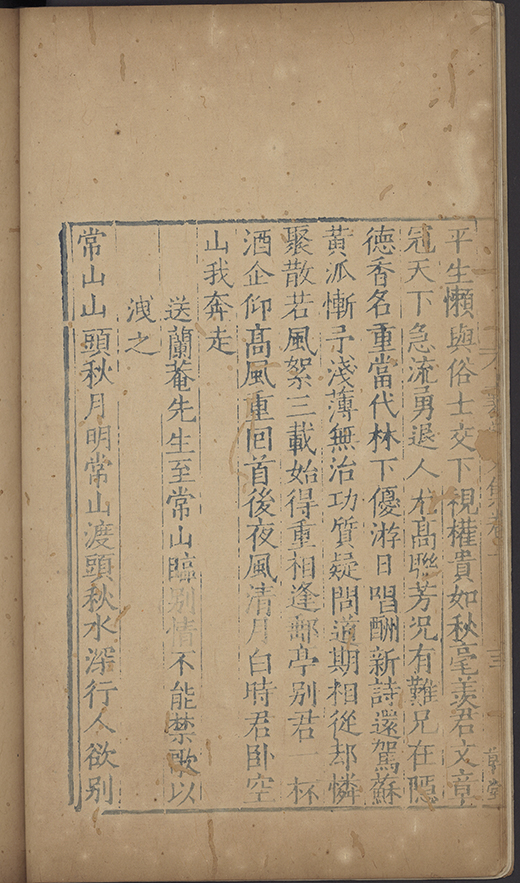 平生懶與俗士交下視權貴如秋毫羨君文章
冠天下急流勇退人尤高聯芳況有難兄在隱
德香名重當代林下優游日唱酬新詩還駕蘇
黃沠慚予淺薄無治功質疑問道期相從却憐
聚散若風絮三載始得重相逢郵亭别君一杯
酒企仰高風重回首後夜風清月白時君卧空
山我奔走
送蘭菴先生至常山臨别情不能禁歌以
洩之
常山山頭秋月明常山渡頭秋水深行人欲别